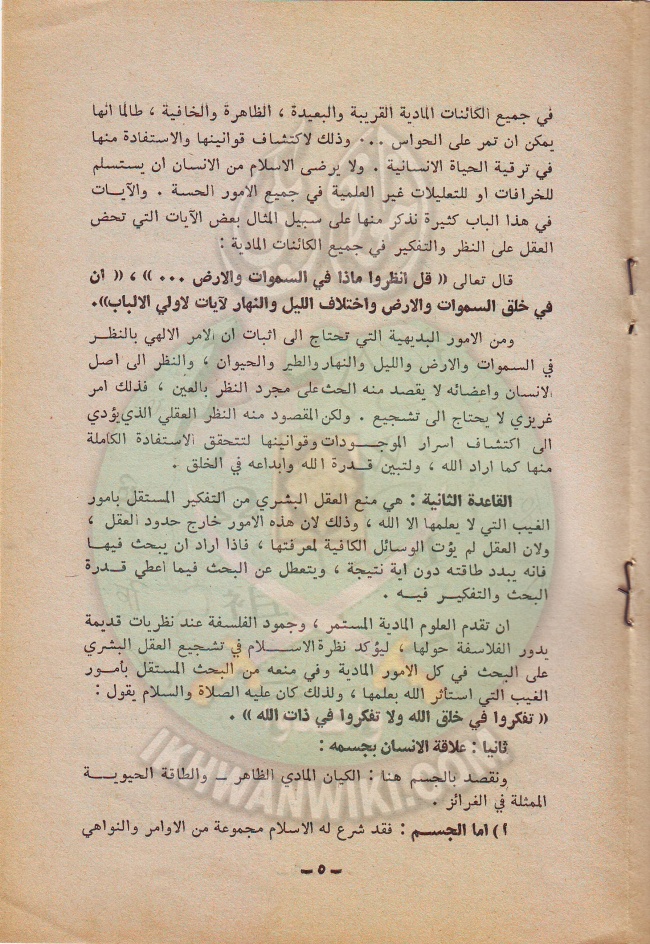 في جميع الكائنات المادية القريبة والبعيدة ، الظاهرة والخافية ، طالما انها
يمكن ان تمر على الحواس ... وذلك لاكتشاف قوانينها والاستفادة منها
في ترقية الحياة الانسانية . ولا يرضى الاسلام من الانسان ان يستسلم
للخرافات او للتعليلات غير العلمية في جميع الامور الحسة . والآيات
في هذا الباب كثيرة نذكر منها على سبيل المثال بعض الآيات التي تحض
العقل على النظر والتفكير في جميع الكائنات المادية :
قال تعالى « قل انظروا ماذا في السموات والارض ... » ، « ان
في خلق السموات والارض واختلاف الليل والنهار لآيات لاولي الالباب».
ومن الامور البديهية التي تحتاج الى اثبات ان الامر الالهي بالنظر
في السموات والارض والليل والنهار والطير والحيوان ، والنظر الى اصل
الانسان واعضائه لا يقصد منه الحث على مجرد النظر بالعين ، فذلك امر
غريزي لا يحتاج الى تشجيع . ولكن المقصود منه النظر العقلي الذي يؤدي
الى اكتشاف اسرار الموجودات وقوانينها لتتحقق الاستفادة الكاملة
منها كما اراد الله ، ولتبين قدرة الله وابداعه في الخلق .
القاعدة الثانية : هي منع العقل البشري من التفكير المستقل بامور
الغيب التي لا يعلمها الا الله ، وذلك لان هذه الامور خارج حدود العقل ،
ولان العقل لم يؤت الوسائل الكافية لمعرفتها ، فاذا اراد ان يبحث فيها
فانه يبدد طاقته دون اية نتيجة ، ويتعطل عن البحث فيما أعطي قدرة
البحث والتفكير فيه .
ان تقدم العلوم المادية المستمر ، وجمود الفلسفة عند نظريات قديمة
يدور الفلاسفة حولها ، ليؤكد نظرة الاسلام في تشجيع العقل البشري
على البحث في كل الامور المادية وفي منعه من البحث المستقل بأمور
الغيب التي استأثر الله بعلمها ، ولذلك كان عليه الصلاة والسلام يقول :
« تفكروا في خلق الله ولا تفكروا في ذات الله » .
ثانيا : علاقة الانسان بجسمه :
ونقصد بالجسم هنا : الكيان المادي الظاهر – والطاقة الحيوية
الممثلة في الغرائز .
أ) اما الجسم : فقد شرع له الاسلام مجموعة من الاوامر والنواهي
– ٥ –
IKHWANWIKI.COM